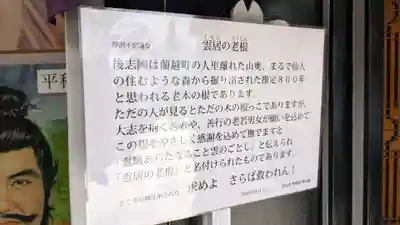 摩訶不思議な 雲居の老根
後志國は蘭越町の人里離れた山奥、まるで仙人
の住むような森から掘り出された推定800年
と思われる老木の根であります。
ただの人が見るとただの木の根っこでありますが、
大志を抱く若者や、善行の老若男女が願いを込めて
この根をやさしく感謝を込めて撫でますと
霊験あらたなること雲のごとし。と伝えられ
『雲居の老根』と名付けられたものであります。
求めよ さらば救われん！
平和